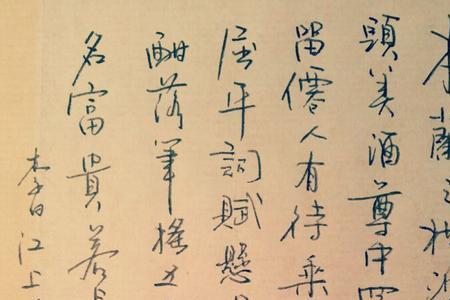 蘭之枻
頭美酒尊中
留僊人有待乘
屈平詞賦懸
酣落筆搖五
名富貴若
李白江上